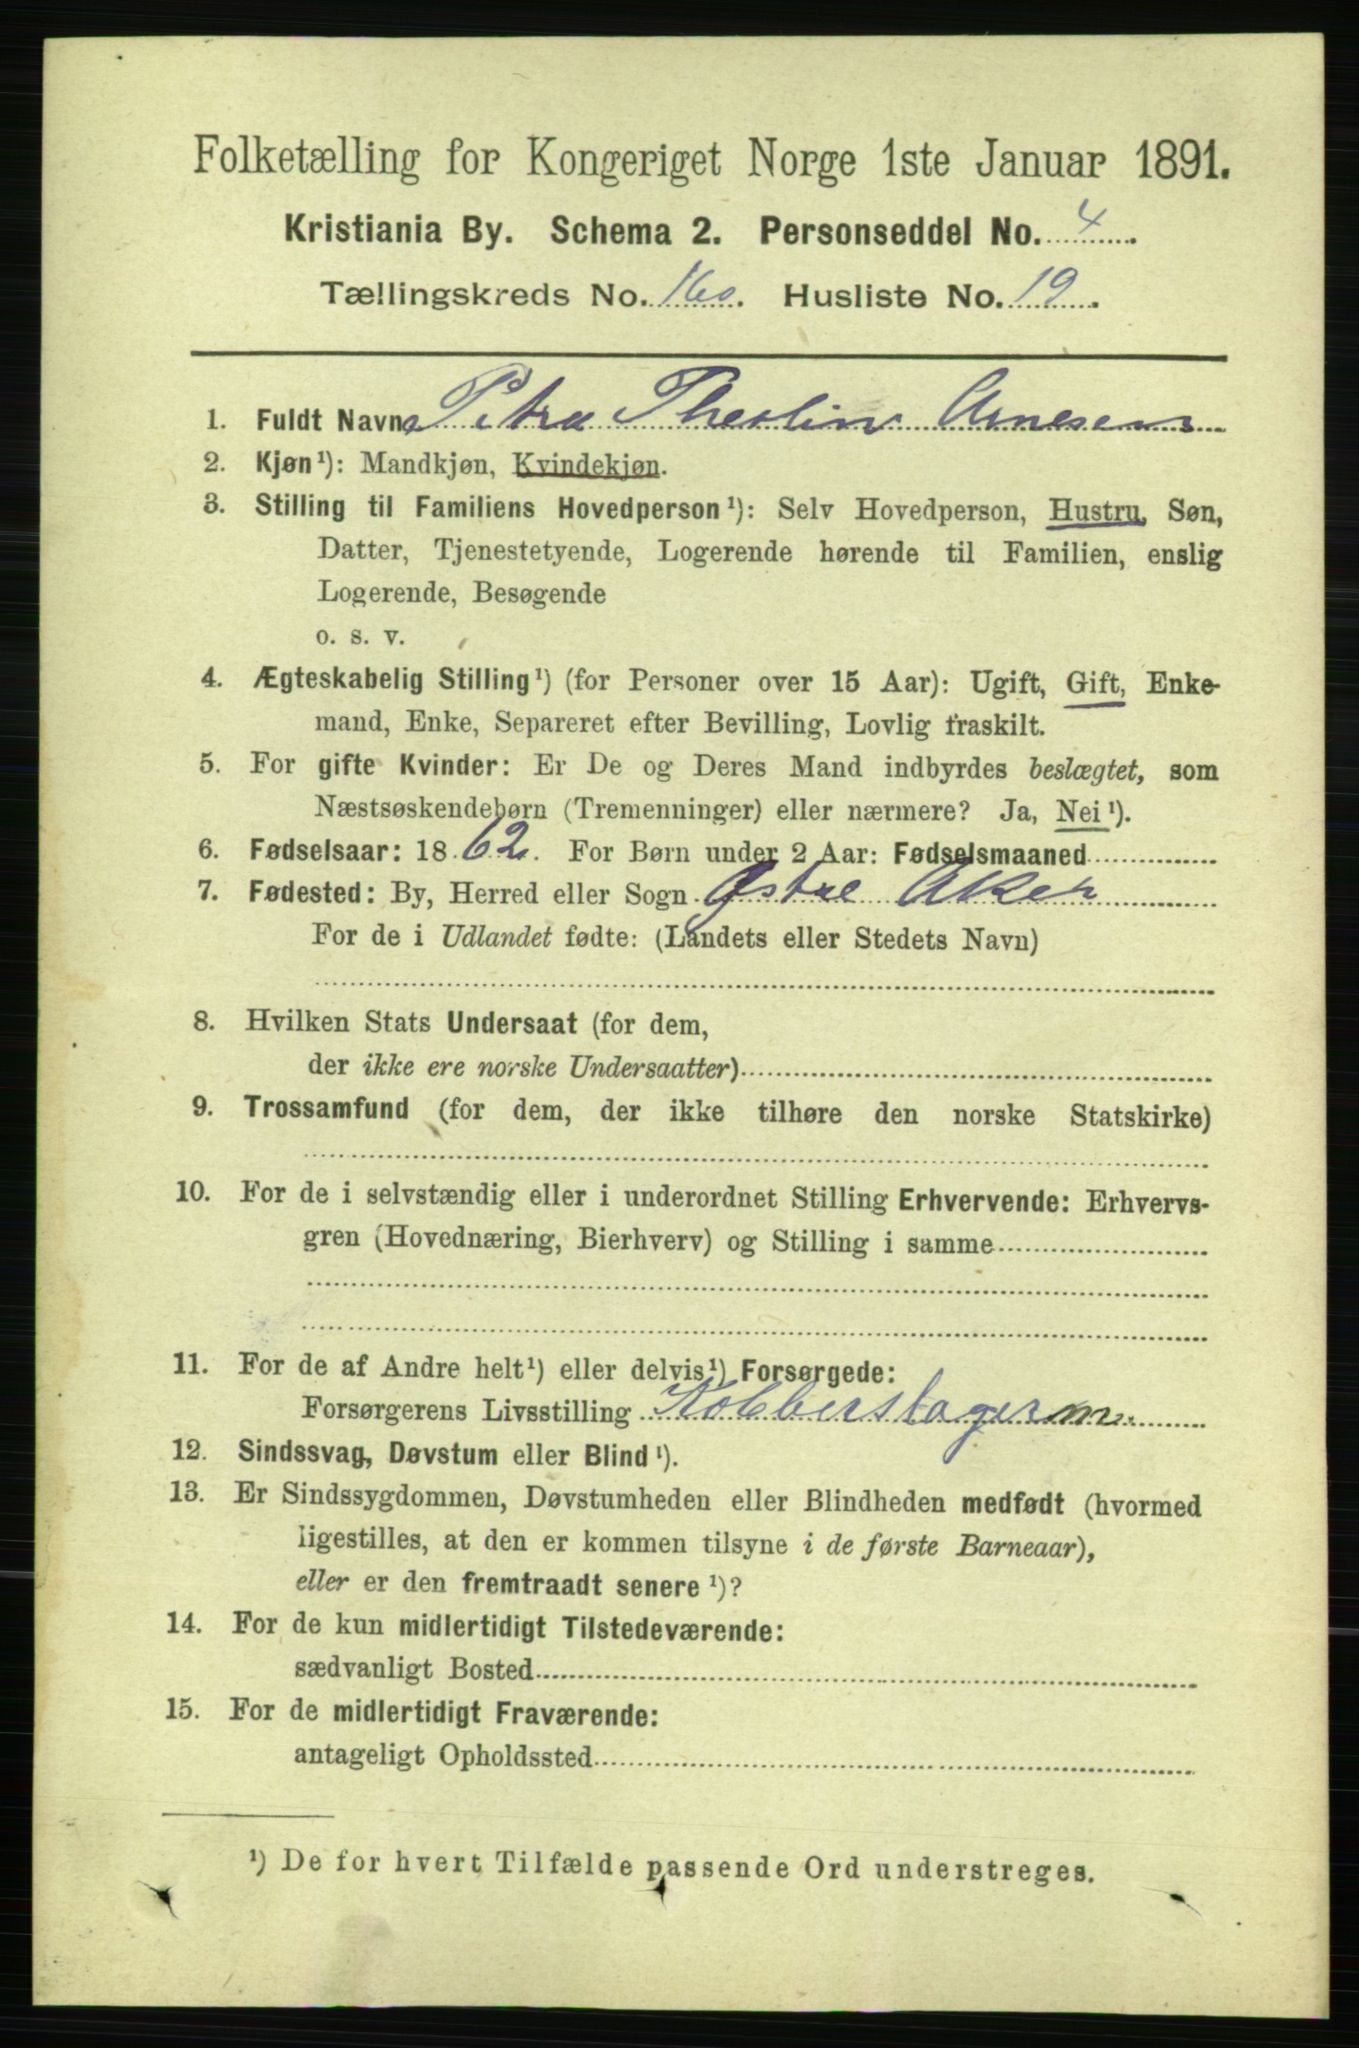 Folketælling for Kongeriget Norge 1ste Januar 1891.
Kristiania By. Schema 2. Personseddel No. 4.
Tællingskreds No. 160. Husliste No. 19.
1. Fuldt Navn Petra Theoline Arnesen
2. Kjøn¹): Mandkjøn, Kvindekjøn.
3. Stilling til Familiens Hovedperson¹): Selv Hovedperson, Hustru, Søn,
Datter, Tjenestetyende, Logerende hørende til Familien, enslig
Logerende, Besøgende
o. s. v.
4. Ægteskabelig Stilling¹) (for Personer over 15 Aar): Ugift, Gift, Enke-
mand, Enke, Separeret efter Bevilling, Lovlig fraskilt.
5. For gifte Kvinder: Er De og Deres Mand indbyrdes beslægtet, som
Næstsøskendebørn (Tremenninger) eller nærmere? Ja, Nei¹).
6. Fødselsaar: 1862. For Børn under 2 Aar: Fødselsmaaned
7. Fødested: By, Herred eller Sogn Østre Aker
For de i Udlandet fødte: (Landets eller Stedets Navn)
8. Hvilken Stats Undersaat (for dem,
der ikke ere norske Undersaatter)
9. Trossamfund (for dem, der ikke tilhøre den norske Statskirke)
10. For de i selvstændig eller i underordnet Stilling Erhvervende: Erhvervs-
gren (Hovednæring, Bierhverv) og Stilling i samme
11. For de af Andre helt¹) eller delvis¹) Forsørgede:
Forsørgerens Livsstilling Kobberslager m.
12. Sindssvag, Døvstum eller Blind¹).
13. Er Sindssygdommen, Døvstumheden eller Blindheden medfødt (hvormed
ligestilles, at den er kommen tilsyne i de første Barneaar),
eller er den fremtraadt senere¹)?
14. For de kun midlertidigt Tilstedeværende:
sædvanligt Bosted
15. For de midlertidigt Fraværende:
antageligt Opholdssted
¹) De for hvert Tilfælde passende Ord understreges.